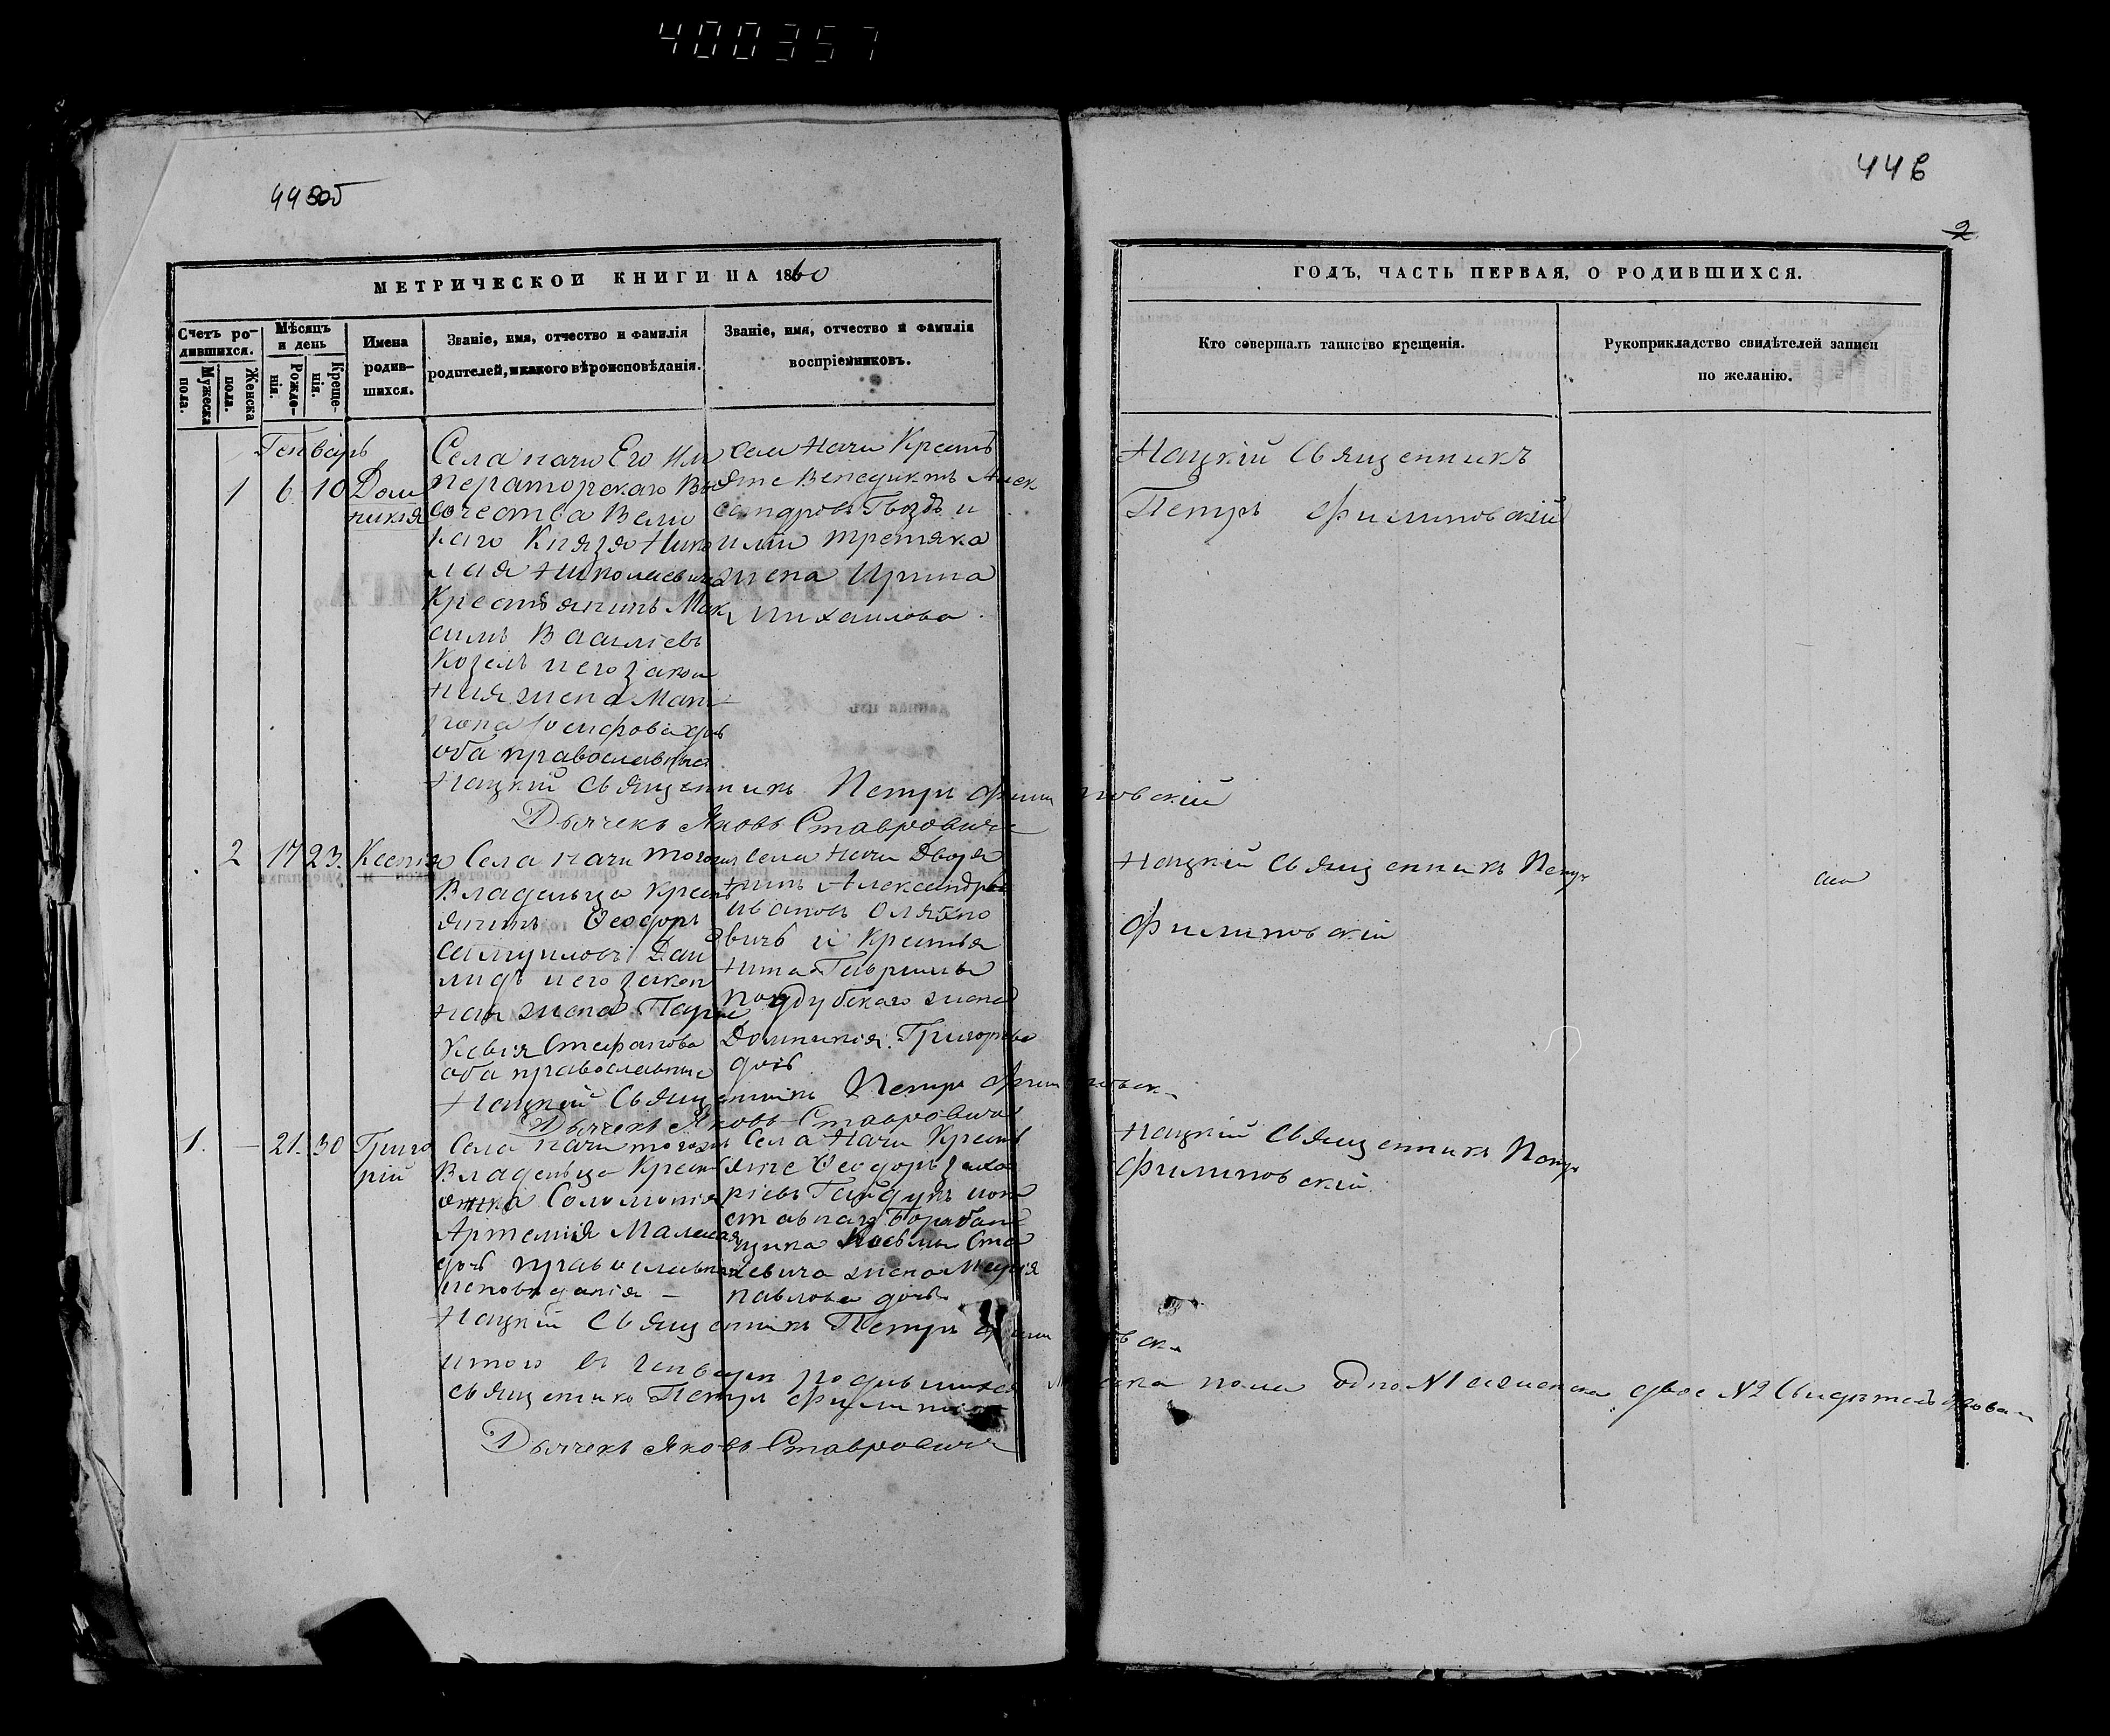 400357
446
2
МЕТРИЧЕСКОЙ КНИГИ НА 1860
ГОДЪ, ЧАСТЬ ПЕРВАЯ, О РОДИВШИХСЯ.
Счетъ ро-
дившихся.
Мужеска пола.
Женска пола.
Мѣсяцъ
и день
Рожде-
нія.
Креще-
нія.
Имена
родив-
шихся.
Званіе, имя, отчество и фамилія
родителей, и какого вѣроисповѣданія.
Званіе, имя, отчество и фамилія
воспріемниковъ.
Кто совершалъ таинство крещенія.
Рукоприкладство свидѣтелей записи
по желанію.
Генварь
1 6. 10 Дом
никія
Села Начи Его Им
ператорскаго Вы
сочества Вели
каго Князя Нико
лая Николаевича
Крестьянинъ Мак
симъ Василіевъ
Козелъ и его закон
ная жена Мат
рона Іосифова
оба православные
села Начи Кресть
яне Венедиктъ Алек
сандровъ Гвоздь и
жена Ирина
Михаилова
Нацкій Священникъ
Петръ Филиповскій
Нацкій Священникъ Петръ Филиповскій
Дьячекъ Яковъ Ставровичъ
2 17 23. Ксенія
Села Начи тогожъ
Владельца Крест
янинъ Ѳеодоръ
Самуиловъ Дани
лидъ и его закон
ная жена Парас
кевія Стефанова
оба православные
села Начи Дворя
нинъ Александръ
Ивановъ
и Крестья
нина Гавріила
Поддубскаго жена
Домникія Григорьева
дочь
Нацкій Священникъ Петръ
Филиповскій
Нацкій Священникъ Петръ Филиповск.
Дьячекъ Яковъ Ставровичъ
1. — 21. 30 Григо
рій
Села Начи тогожъ
Владельца Крест
янка Соломонія
Артемія
дочь православнаго
исповеданія —
Села Начи Кресть
яне Ѳеодоръ Заха
ріевъ Гайдукъ и от
ставнаго Барабан
щика Косьмы
жена Марія
Павлова дочь.
Нацкій Священникъ Петръ
Филиповскій.
Нацкій Священникъ Петръ
итого въ Генваре родившихся
пола одно №1 а женска двое №2 Свидетельствовали
священникъ Петръ Филиповск
Дьячекъ Яковъ Ставровичъ